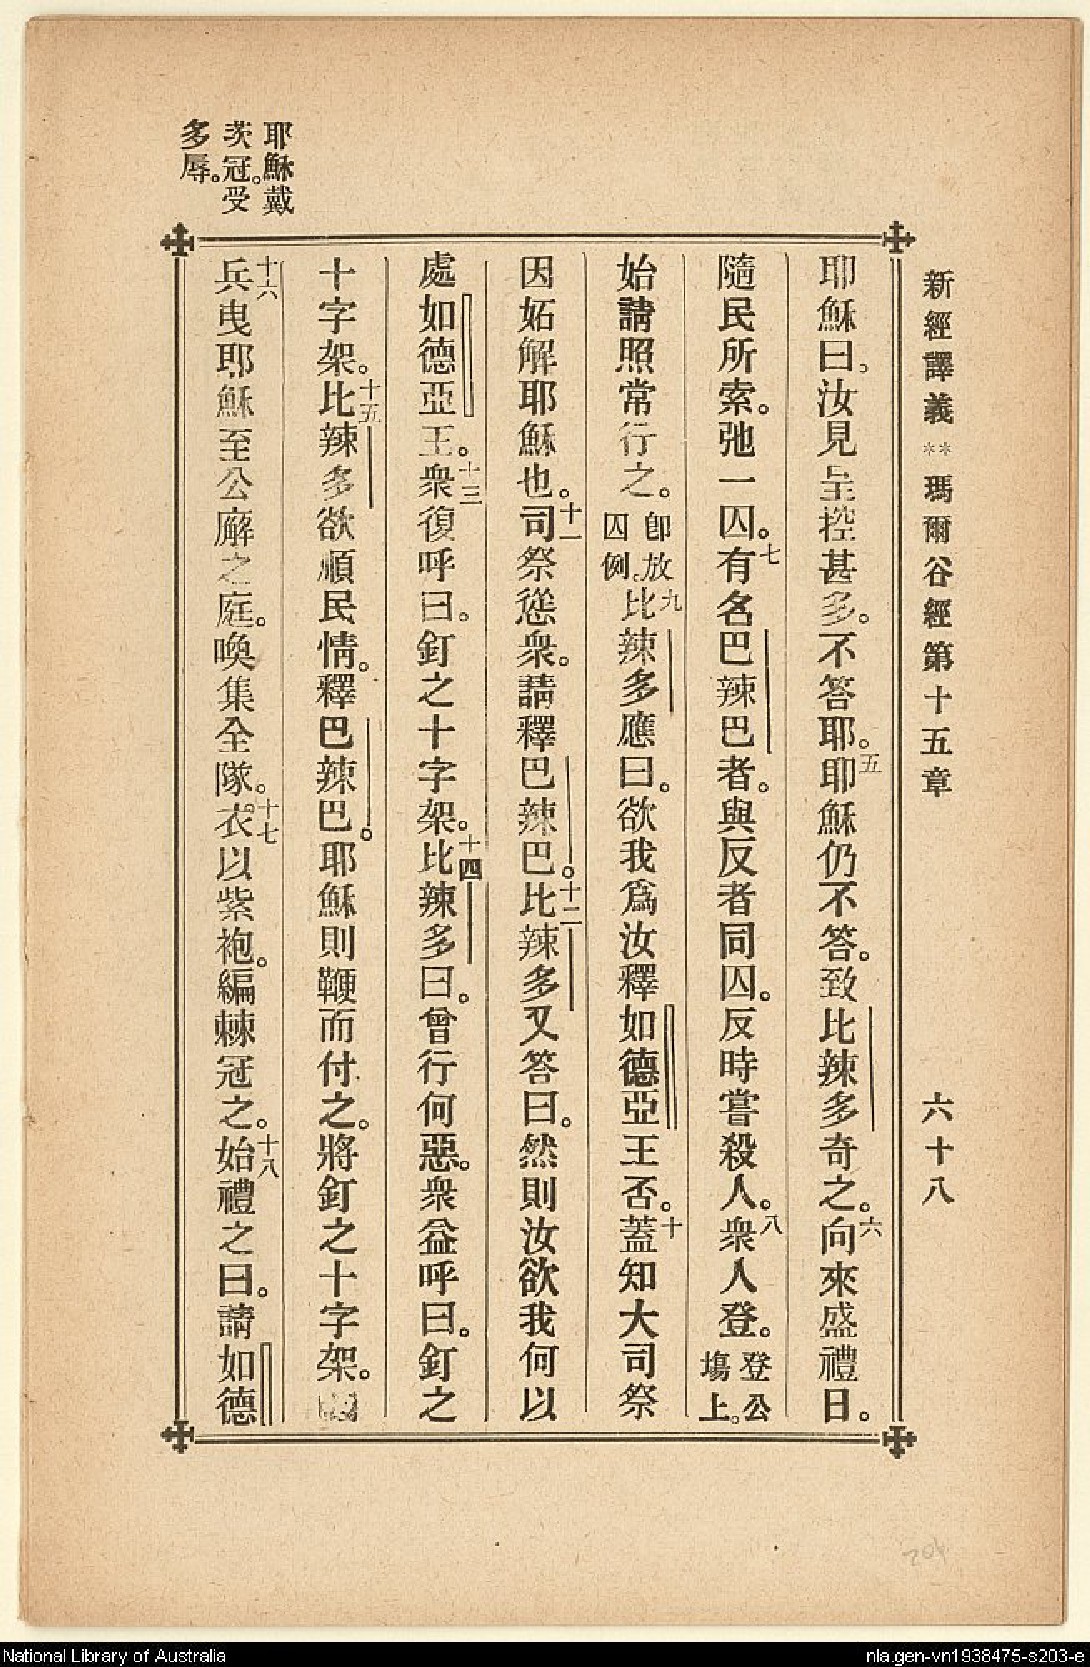 新經譯義 ** 瑪爾谷經第十五章 六十八
耶穌曰。汝見呈控甚多。不答耶。五耶穌仍不答。致比辣多奇之。六向來盛禮日。
隨民所索。弛一囚。七有名巴辣巴者。與反者同囚。反時嘗殺人。八衆人登。登公塲上。
始請照常行之。卽放囚例。九比辣多應曰。欲我爲汝釋如德亞王否。十蓋知大司祭
因妬解耶穌也。十一司祭慫衆。請釋巴辣巴。十二比辣多又答曰。然則汝欲我何以
處如德亞王。十三衆復呼曰。釘之十字架。十四比辣多曰。曾行何惡。衆益呼曰。釘之
十字架。十五比辣多欲順民情。釋巴辣巴。耶穌則鞭而付之。將釘之十字架。
十六兵曳耶穌至公廨之庭。喚集全隊。十七衣以紫袍。編棘冠之。十八始禮之曰。請如德
耶穌戴
茨冠。受
多辱。
204
National Library of Australia
nla.gen-vn1938475-s203-e